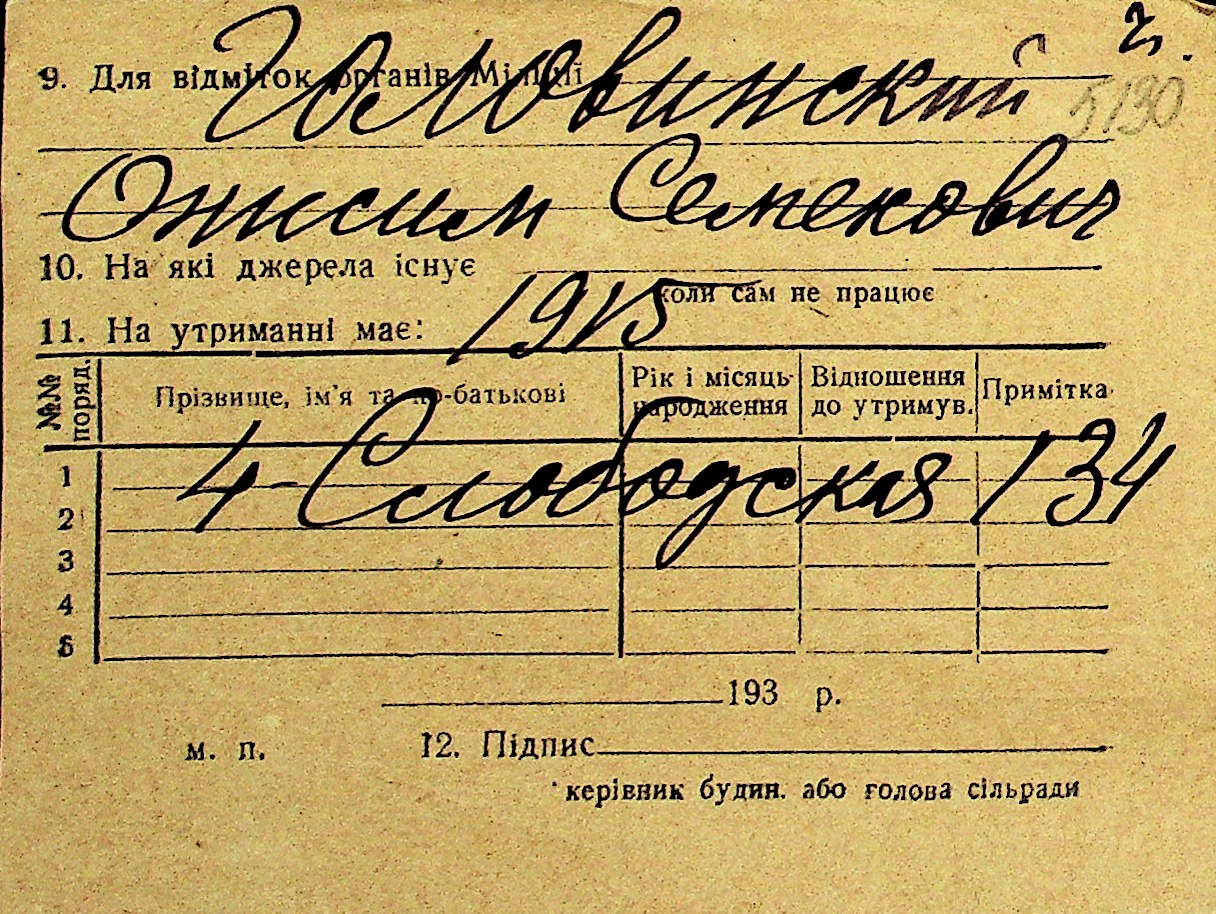 г.
9. Для відміток органів Міліції
Головинский
5130
Онисим Семенович
10. На які джерела існує
коли сам не працює
1915
11. На утриманні має:
№№ поряд. Прізвище, ім'я та по-батькові Рік і місяць народження Відношення до утримув. Примітка
4-Слободская 134
1
2
3
4
5
193 р.
м. п. 12. Підпис
керівник будин. або голова сільради